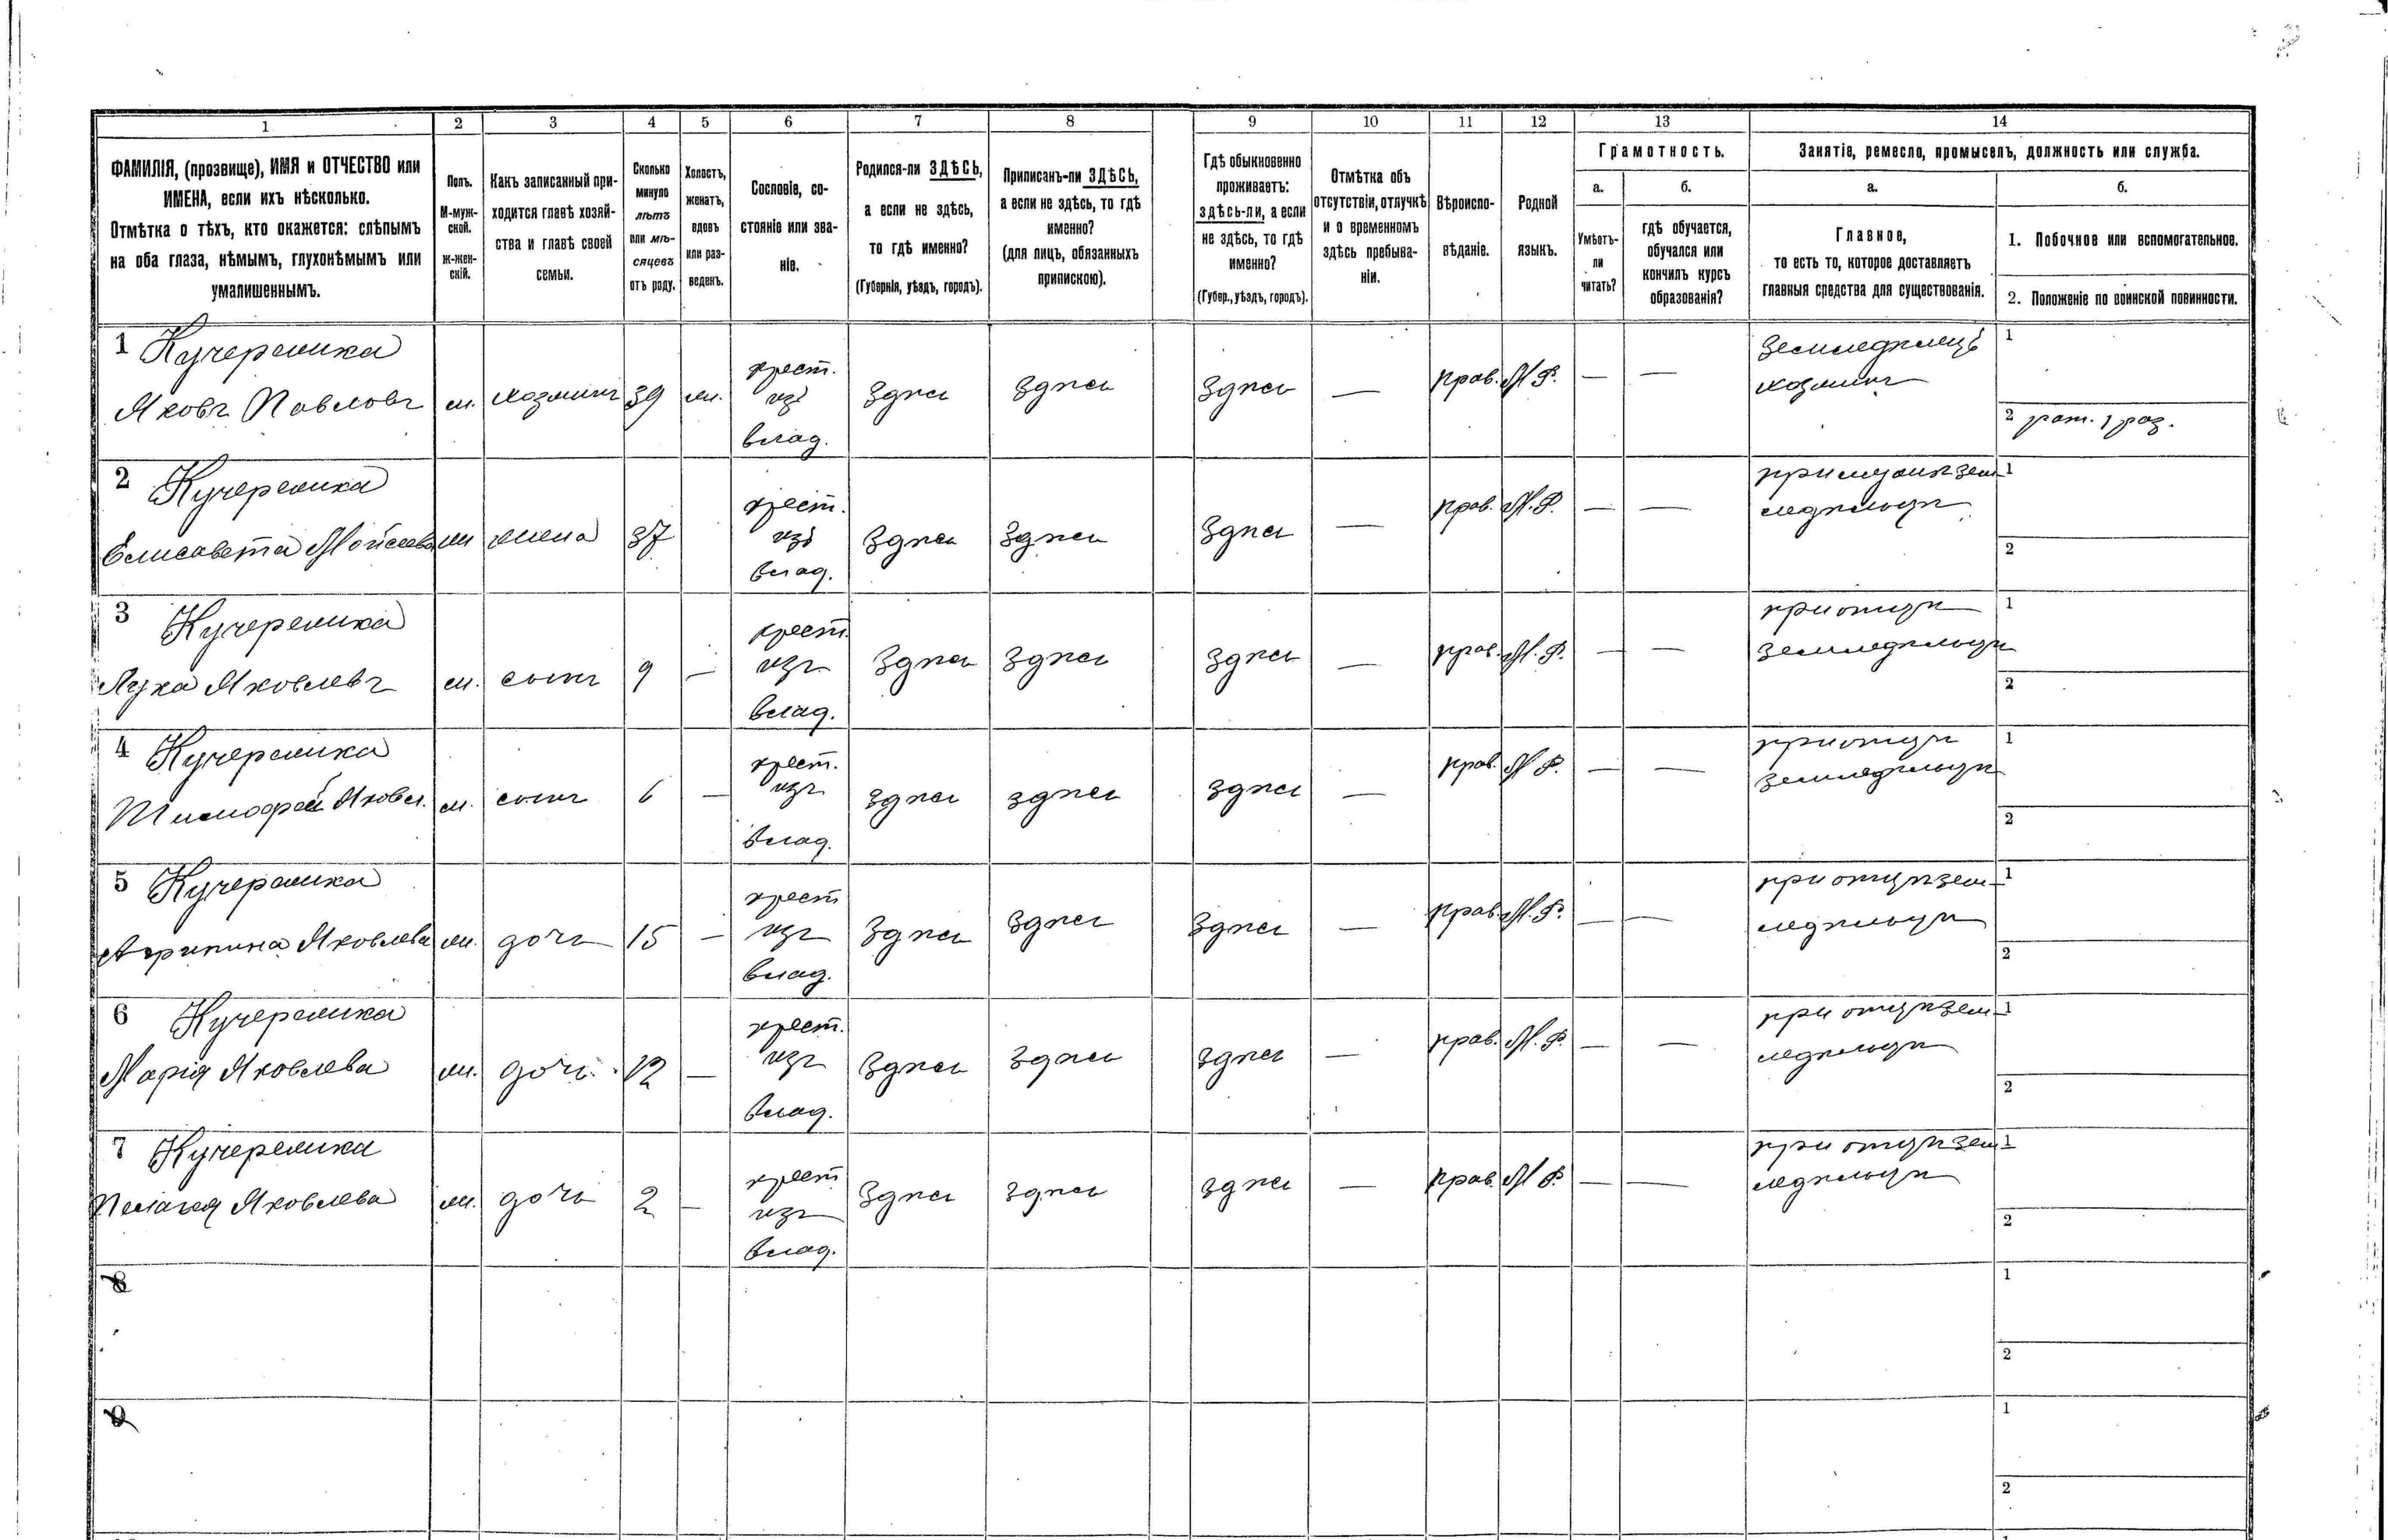 1 2 3 4 5 6 7 8 9 10 11 12 13 14
ФАМИЛІЯ, (прозвище), ИМЯ и ОТЧЕСТВО или
ИМЕНА, если ихъ нѣсколько.
Отмѣтка о тѣхъ, кто окажется: слѣпымъ
на оба глаза, нѣмымъ, глухонѣмымъ или
умалишеннымъ.
Полъ.
М-муж-
ской.
Ж-жен-
скій.
Какъ записанный при-
ходится главѣ хозяй-
ства и главѣ своей
семьи.
Сколько
минуло
лѣтъ
или мѣ-
сяцевъ
отъ роду.
Холостъ,
женатъ,
вдовъ
или раз-
веденъ.
Сословіе, со-
стояніе или зва-
ніе.
Родился-ли ЗДѢСЬ,
а если не здѣсь,
то гдѣ именно?
(Губернія, уѣздъ, городъ).
Приписанъ-ли ЗДѢСЬ,
а если не здѣсь, то гдѣ
именно?
(для лицъ, обязанныхъ
припискою).
Гдѣ обыкновенно
проживаетъ:
здѣсь-ли, а если
не здѣсь, то гдѣ
именно?
(Губер., уѣздъ, городъ).
Отмѣтка объ
отсутствіи, отлучкѣ
и о временномъ
здѣсь пребыва-
ніи.
Вѣроиспо-
вѣданіе.
Родной
языкъ.
Грамотность.
а.
Умѣетъ-
ли
читать?
б.
гдѣ обучается,
обучался или
кончилъ курсъ
образованія?
Занятіе, ремесло, промыселъ, должность или служба.
а.
Главное,
то есть то, которое доставляетъ
главныя средства для существованія.
б.
1. Побочное или вспомогательное.
2. Положеніе по воинской повинности.
1 Кучеренка
Яковъ Павловъ м. хозяинъ 39 ж. крест. изъ влад. здѣсь здѣсь здѣсь — прав. М.Р. — —
земледѣлецъ
хозяинъ
1
2 рат. 1 раз.
2 Кучеренка
Елисавета Мойсеева ж жена 37 крест. изъ влад. здѣсь здѣсь здѣсь — прав. М.Р. — —
при мужѣ зем-
ледѣльцѣ
1
2
3 Кучеренка
Лука Яковлевъ м. сынъ 9 — крест. изъ влад. здѣсь здѣсь здѣсь — прав. М.Р. — —
при отцѣ
земледѣльцѣ
1
2
4 Кучеренка
Тимофей Яковл. м. сынъ 6 — крест. изъ влад. здѣсь здѣсь здѣсь — прав. М.Р. — —
при отцѣ
земледѣльцѣ
1
2
5 Кучеренка
Агрипина Яковлева ж. дочь 15 — крест изъ влад. здѣсь здѣсь здѣсь — прав. М.Р. — —
при отцѣ зем-
ледѣльцѣ
1
2
6 Кучеренка
Марія Яковлева ж. дочь 12 — крест. изъ влад. здѣсь здѣсь здѣсь — прав. М.Р. — —
при отцѣ зем-
ледѣльцѣ
1
2
7 Кучеренка
Пелагея Яковлева ж. дочь 2 — крест изъ влад. здѣсь здѣсь здѣсь — прав. М.Р. — —
при отцѣ зем-
ледѣльцѣ
1
2
8
1
2
9
1
2